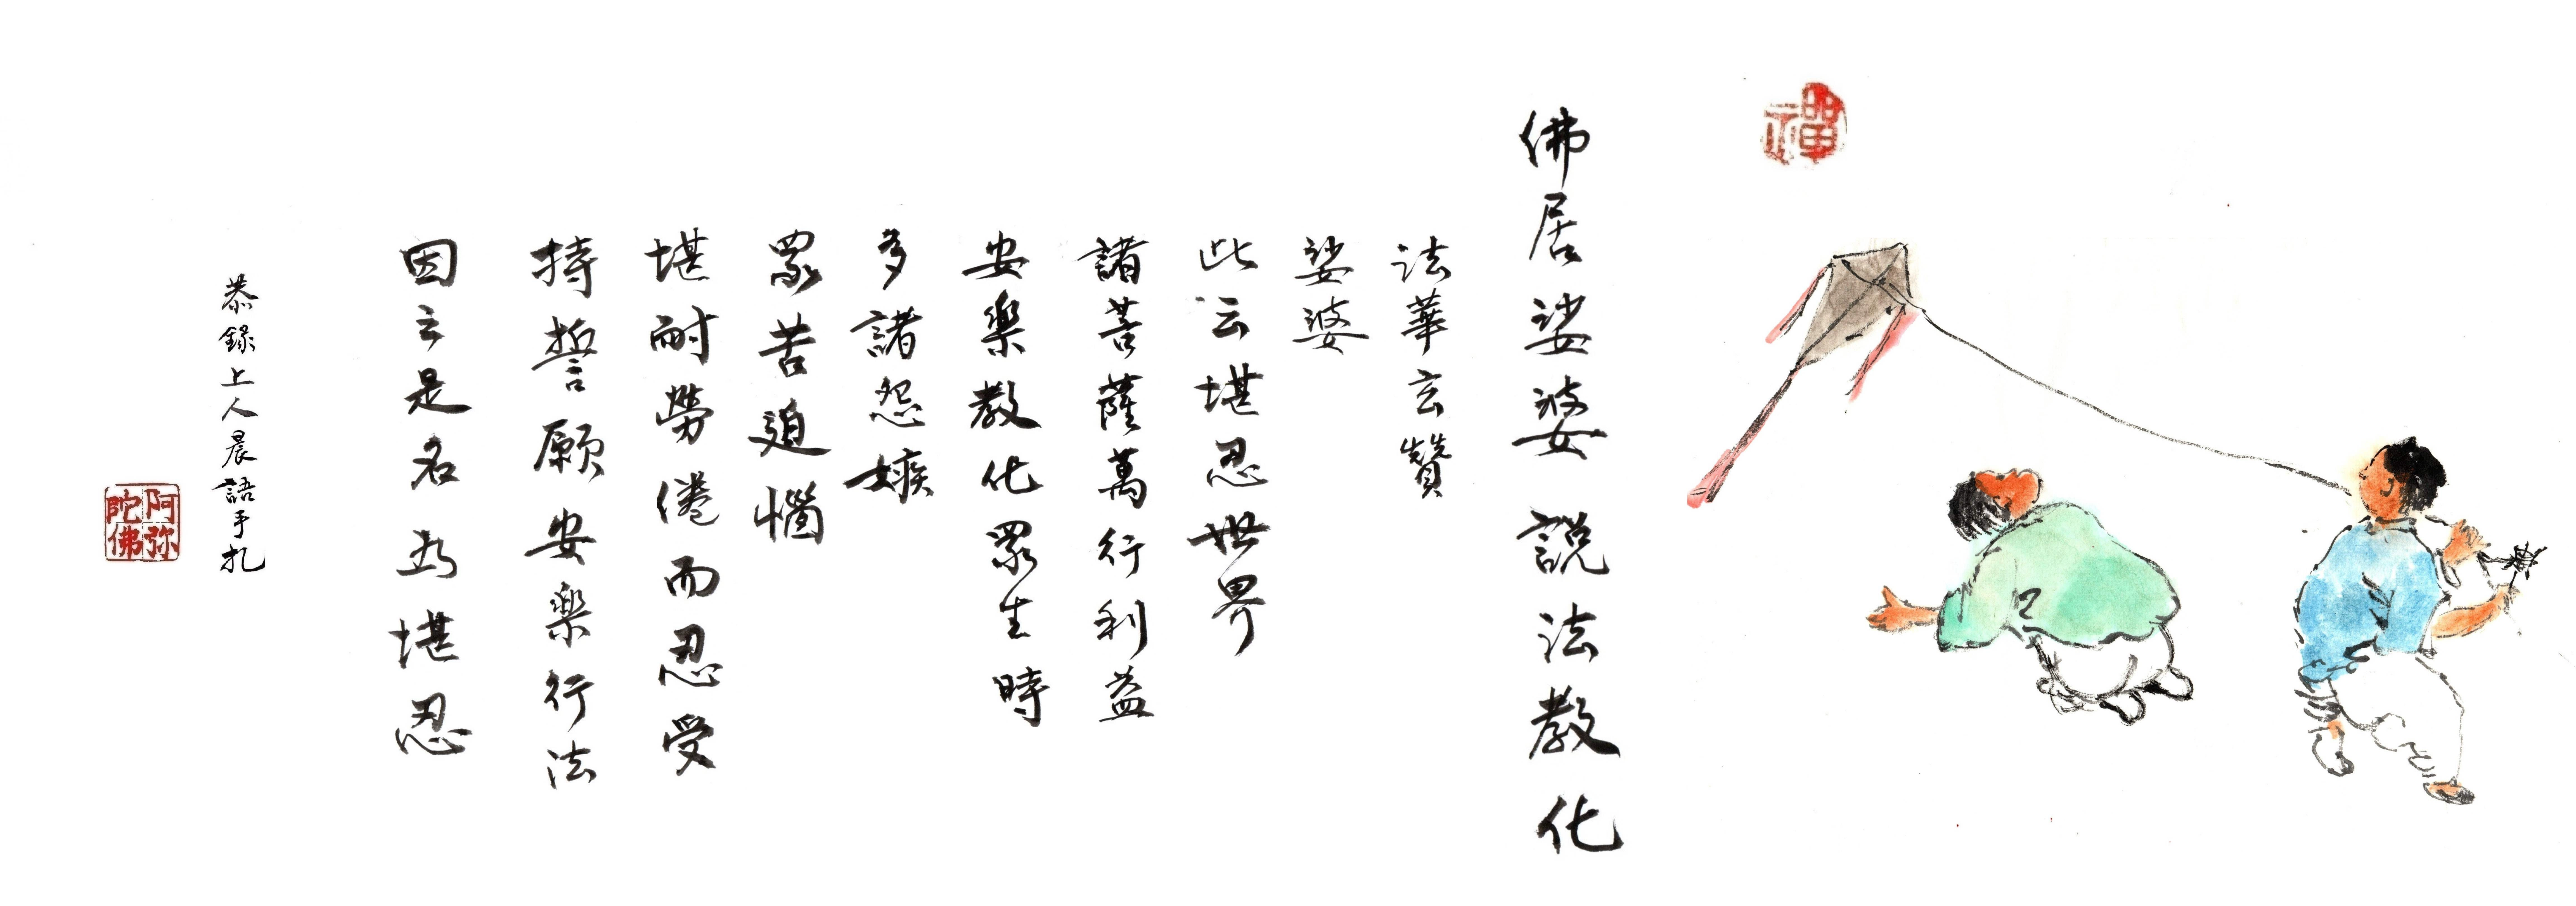 禪
佛居娑婆說法教化
法華玄贊
娑婆
此云堪忍世界
諸菩薩萬行利益
安樂教化眾生時
多諸怨嫉
眾苦迫惱
堪耐勞倦而忍受
持誓願安樂行法
因立是名為堪忍
恭錄上人晨語手扎
阿弥
陀佛